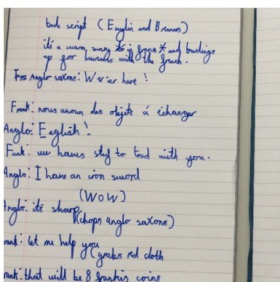 script (English and
its a warm sunny in and
up for with the french.
Anglo saxons: We're here!
Frank: nous avons des objets á échanger
Anglo: English!
Frank: we haves stuf to trad with you.
Anglo: I have an iron sword
(WOW)
Anglo: its sharp
(chops anglo saxons)
rank: let me help you
(grabs red cloth
rank: that will be 8 coins